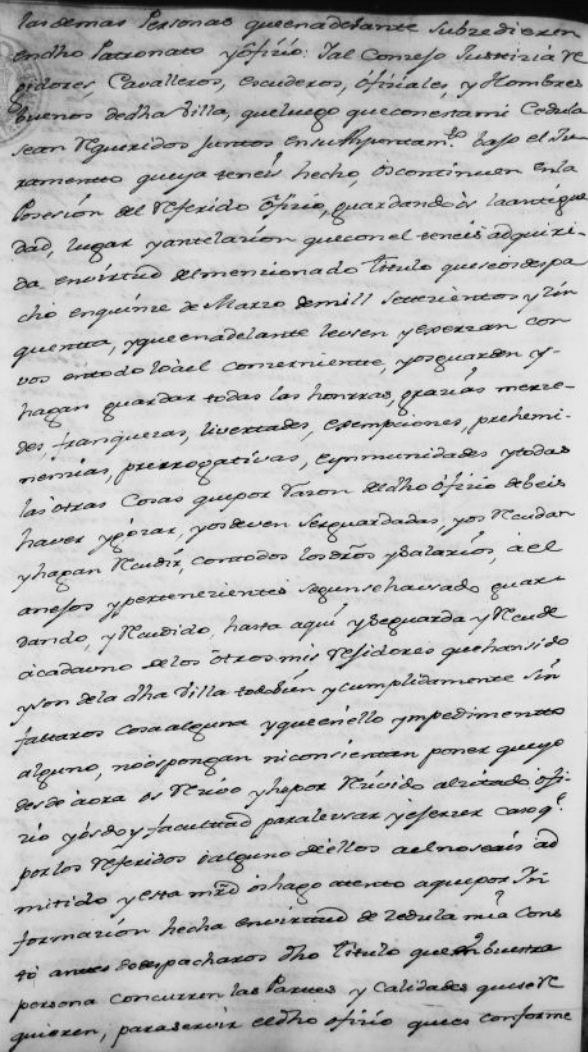 las demas Personas que en adelante subzedieren
en dho Patronato y ofizio: Y al Conzejo Justizia Re
gidores, Cavalleros, escuderos, ofiziales, y Hombres
buenos de dha Villa, que luego que con esta mi Cedula
sean Requeridos Juntos en su Ayuntamto. bajo el Ju
ramentto que ya teneis hecho, os continuen en la
Posesión del Referido ofizio, guardando ôs la antigue
dad, lugar y antelazion que con el teneis adquiri-
da, en virtud del menzionado Titulo que se os despa
chó en quinze de Marzo de mill settezientos y zin
quentta, y que en adelante le usen y exerzan con
vos en todo lo â el conzerniente, y os guarden y-
hagan guardar todas las honrras, grazias merze-
des, franquezas, livertades, exempziones, prehemi-
nenzias, prerrogativas, e ynmunidades y todas
las otras Cosas que por razon de dho ofizio debeis
haver y gozar, y os deven ser guardadas, y os Recudan
y hagan Recudir, con todos los dros y Salarios, â el
anejos y pertenezientes segun se ha usado guar-
dando, y Recudido, hasta aquí y se guarda y Recude
â cada uno de los ôtros mis Rejidores que han sido
y son de la dha Villa todo bien y cumplidamente sin
faltaros cosa alguna y que en ello ympedimentto
alguno, no ôs pongan ni consientan poner que yo
desde âora os Rezivo y he por Rezivido al zitado ofi-
zio y ôs doy facultad para le usar y ejerzer caso q.e
por los Referidos ô alguno de ellos a el no seais ad
mitido y esta mrd ôs hago atento a que por In
formazión hecha en virtud de Zedula mia Cons
tó antes de despacharos dho Titulo que en buestra
persona concurren las Partes y Calidades que se Re
quieren, para servir el dho ofizio que es conforme